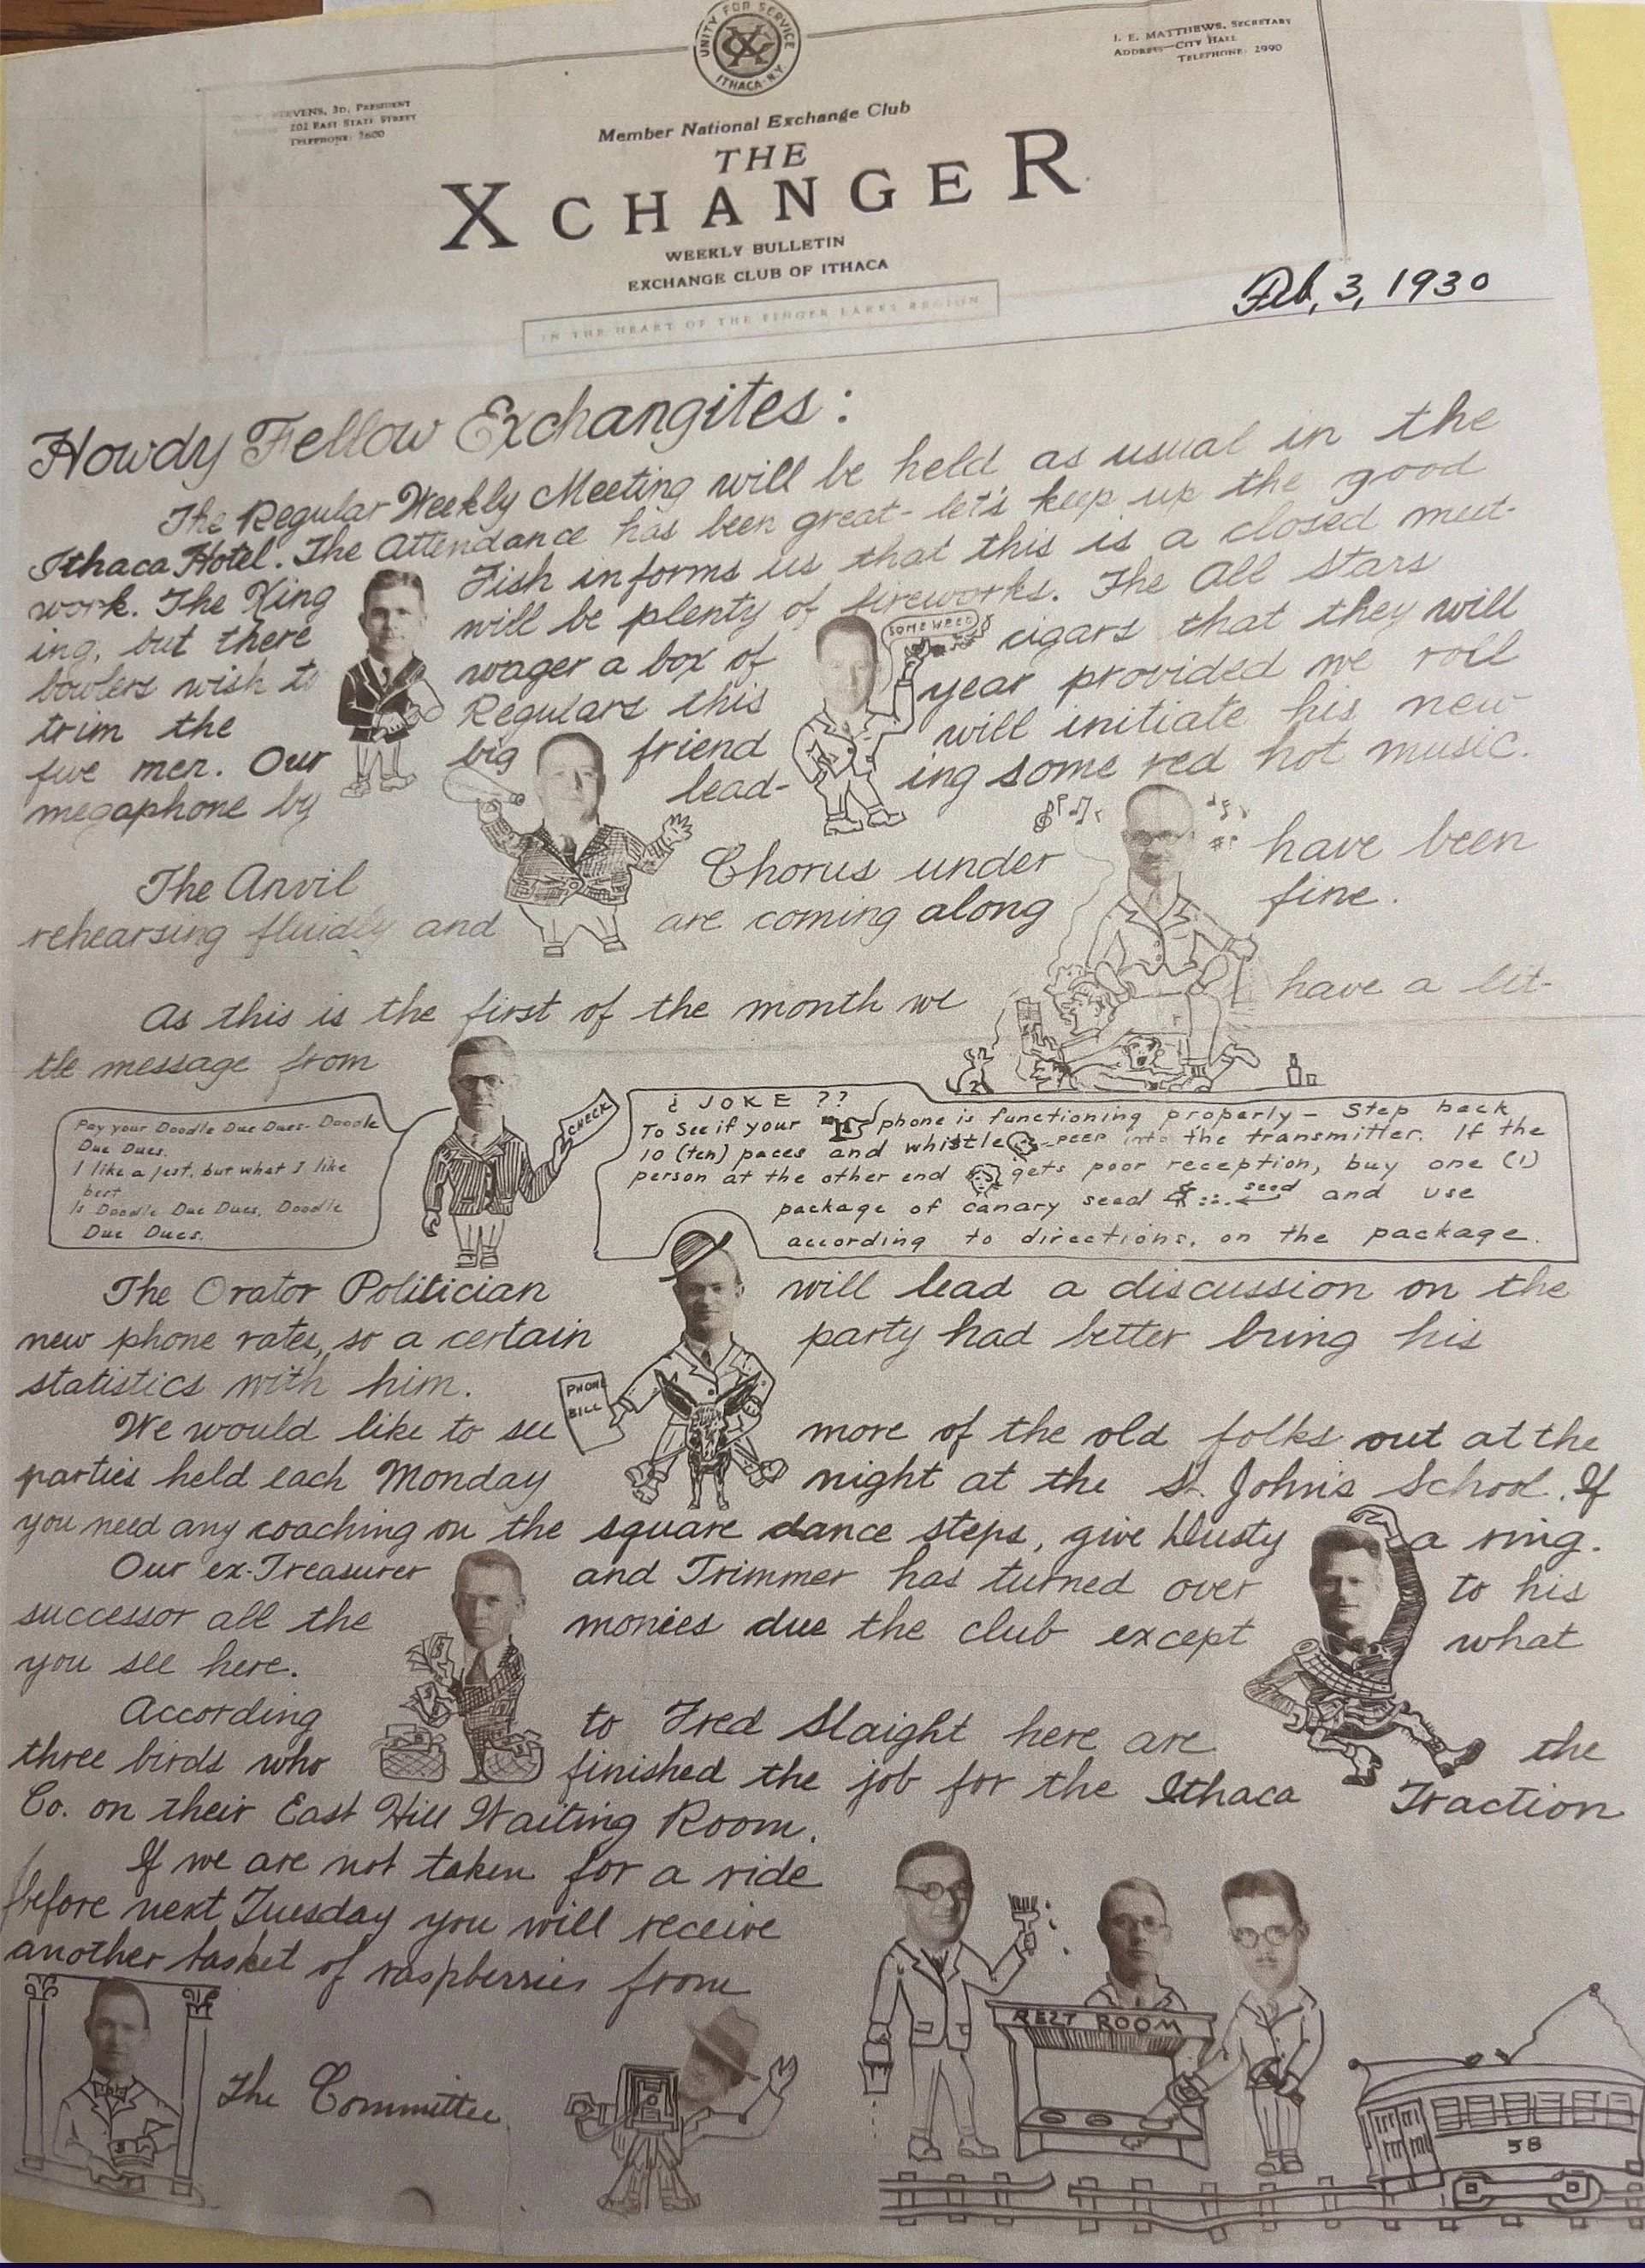 UNITY FOR SERVICE
ITHACA N.Y.
J. E. MATTHEWS, SECRETARY
ADDRESS—CITY HALL
TELEPHONE: 2990
STEVENS, 3D, PRESIDENT
202 EAST STATE STREET
TELEPHONE: 2600
Member National Exchange Club
THE
XCHANGER
WEEKLY BULLETIN
EXCHANGE CLUB OF ITHACA
IN THE HEART OF THE FINGER LAKES REGION
Feb, 3, 1930
Howdy Fellow Exchangites:
The Regular Weekly Meeting will be held as usual in the
Ithaca Hotel. The Attendance has been great - let's keep up the good
work. The King Fish informs us that this is a closed meet-
ing, but there will be plenty of fireworks. The All Stars
bowlers wish to wager a box of SOME WEED cigars that they will
trim the Regulars this year provided we roll
five men. Our big friend will initiate his new
megaphone by lead- ing some red hot music.
The Anvil Chorus under have been
rehearsing fluidly and are coming along fine.
As this is the first of the month we have a lit-
tle message from
CHECK
Pay your Doodle Due Dues- Doodle
Due Dues.
I like a jest, but what I like
best
Is Doodle Due Dues, Doodle
Due Dues.
¿ JOKE ??
To see if your phone is functioning properly - Step back
10 (ten) paces and whistle -PEEP into the transmitter. If the
person at the other end gets poor reception, buy one (1)
package of canary seed seed and use
according to directions, on the package.
The Orator Politician will lead a discussion on the
new phone rates, so a certain party had better bring his
statistics with him.
PHONE
BILL
We would like to see more of the old folks out at the
parties held each Monday night at the St. John's School. If
you need any coaching on the square dance steps, give Dusty a ring.
Our ex-Treasurer and Trimmer has turned over to his
successor all the monies due the club except what
you see here.
According to Fred Slaight here are the
three birds who finished the job for the Ithaca Traction
Co. on their East Hill Waiting Room.
If we are not taken for a ride
before next Tuesday you will receive
another basket of raspberries from
The Committee.
REST ROOM
58